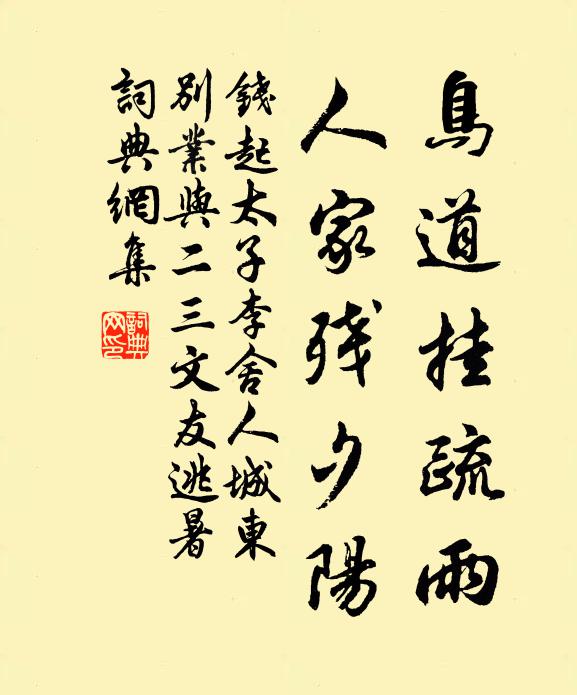 鳥道挂疏雨
人家殘夕陽
錢起太子李舍人城東
別業與二三文友逃暑
詞典網集
詞典
网印